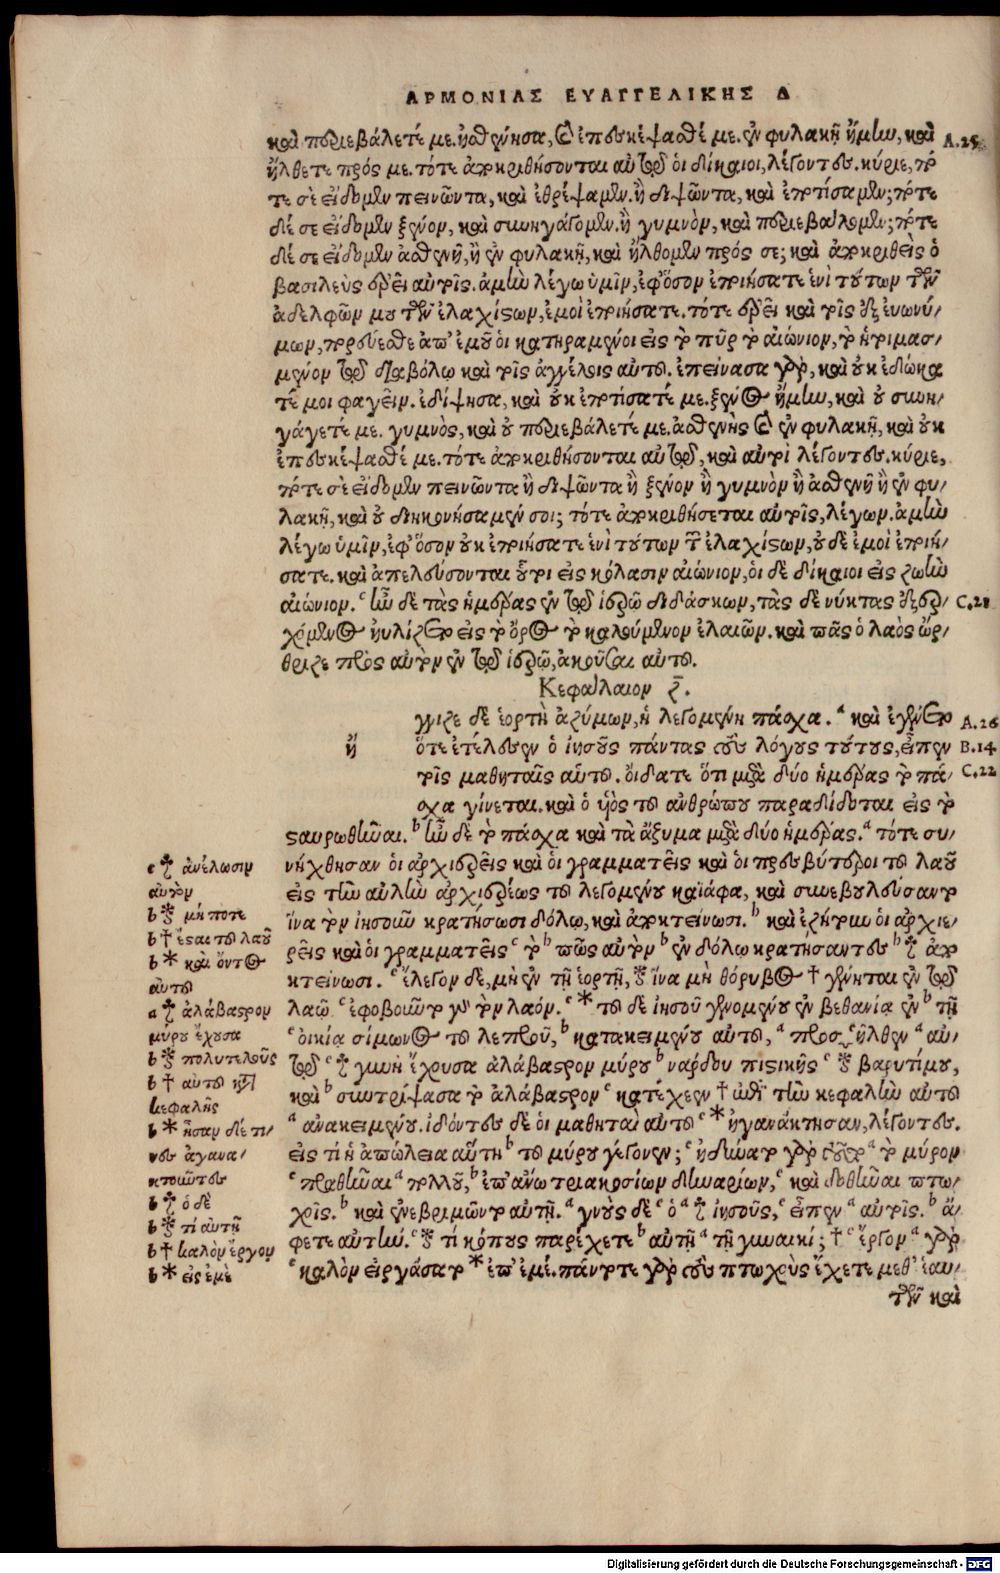 ΑΡΜΟΝΙΑΣ ΕΥΑΓΓΕΛΙΚΗΣ Δ
καὶ περιεβάλετέ με. ἠσθένησα, καὶ ἐπεσκέψασθέ με. ἐν φυλακῇ ἤμην, καὶ
A.25
ἤλθετε πρός με. τότε ἀποκριθήσονται αὐτῷ οἱ δίκαιοι, λέγοντες. κύριε, πό
τε σὲ εἴδομεν πεινῶντα, καὶ ἐθρέψαμεν. ἢ διψῶντα, καὶ ἐποτίσαμεν; πότε
δέ σε εἴδομεν ξένον, καὶ συνηγάγομεν. ἢ γυμνὸν, καὶ περιεβάλομεν; πότε
δέ σε εἴδομεν ἀσθενῆ, ἢ ἐν φυλακῇ, καὶ ἤλθομεν πρός σε; καὶ ἀποκριθεὶς ὁ
βασιλεὺς ἐρεῖ αὐτοῖς. ἀμὴν λέγω ὑμῖν, ἐφ' ὅσον ἐποιήσατε ἑνὶ τούτων τῶν
ἀδελφῶν μου τῶν ἐλαχίστων, ἐμοὶ ἐποιήσατε. τότε ἐρεῖ καὶ τοῖς ἐξ εὐωνύ/
μων, πορεύεσθε ἀπ' ἐμοῦ οἱ κατηραμένοι εἰς τὸ πῦρ τὸ αἰώνιον, τὸ ἡτοιμασ/
μένον τῷ διαβόλῳ καὶ τοῖς ἀγγέλοις αὐτοῦ. ἐπείνασα γὰρ, καὶ οὐκ ἐδώκα
τέ μοι φαγεῖν. ἐδίψησα, καὶ οὐκ ἐποτίσατέ με. ξένος ἤμην, καὶ οὐ συνη/
γάγετέ με. γυμνὸς, καὶ οὐ περιεβάλετέ με. ἀσθενὴς καὶ ἐν φυλακῇ, καὶ οὐκ
ἐπεσκέψασθέ με. τότε ἀποκριθήσονται αὐτῷ, καὶ αὐτοὶ λέγοντες. κύριε,
πότε σὲ εἴδομεν πεινῶντα ἢ διψῶντα ἢ ξένον ἢ γυμνὸν ἢ ἀσθενῆ ἢ ἐν φυ/
λακῇ, καὶ οὐ διηκονήσαμέν σοι; τότε ἀποκριθήσεται αὐτοῖς, λέγων. ἀμὴν
λέγω ὑμῖν, ἐφ' ὅσον οὐκ ἐποιήσατε ἑνὶ τούτων τῶν ἐλαχίστων, οὐδὲ ἐμοὶ ἐποιή/
σατε. καὶ ἀπελεύσονται οὗτοι εἰς κόλασιν αἰώνιον, οἱ δὲ δίκαιοι εἰς ζωὴν
αἰώνιον. c ἦν δὲ τὰς ἡμέρας ἐν τῷ ἱερῷ διδάσκων, τὰς δὲ νύκτας ἐξερ/
C.21
χόμενος ηὐλίζετο εἰς τὸ ὄρος τὸ καλούμενον ἐλαιῶν. καὶ πᾶς ὁ λαὸς ὤρ/
θριζε πρὸς αὐτὸν ἐν τῷ ἱερῷ, ἀκούειν αὐτοῦ.
Κεφάλαιον ζ.
ἤγγιζε δὲ ἑορτὴ ἀζύμων, ἡ λεγομένη πάσχα. a καὶ ἐγένετο
A.26
ὅτε ἐτέλεσεν ὁ ἰησοῦς πάντας τοὺς λόγους τούτους, εἶπεν
B.14
τοῖς μαθηταῖς αὑτοῦ. οἴδατε ὅτι μετὰ δύο ἡμέρας τὸ πά/
C.22
σχα γίνεται. καὶ ὁ υἱὸς τοῦ ἀνθρώπου παραδίδοται εἰς τὸ
σταυρωθῆναι. b ἦν δὲ τὸ πάσχα καὶ τὰ ἄζυμα μετὰ δύο ἡμέρας. a τότε συ/
νήχθησαν οἱ ἀρχιερεῖς καὶ οἱ γραμματεῖς καὶ οἱ πρεσβύτεροι τοῦ λαοῦ
εἰς τὴν αὐλὴν ἀρχιερέως τοῦ λεγομένου καϊάφα, καὶ συνεβουλεύσαντο
ἵνα τὸν ἰησοῦν κρατήσωσι δόλῳ, καὶ ἀποκτείνωσι. b καὶ ἐζήτουν οἱ ἀρχιε/
ρεῖς καὶ οἱ γραμματεῖς c τὸ b πῶς αὐτὸν b ἐν δόλῳ κρατήσαντες b ☧ ἀπο
κτείνωσι. c ἔλεγον δὲ, μὴ ἐν τῇ ἑορτῇ, ※ ἵνα μὴ θόρυβος † γένηται ἐν τῷ
λαῷ c ἐφοβοῦντο γὰρ τὸν λαόν. c * τοῦ δὲ ἰησοῦ γενομένου ἐν βεθανίᾳ ἐν b τῇ
c οἰκίᾳ σίμωνος τοῦ λεπροῦ, b κατακειμένου αὐτοῦ, a προσ c ῆλθεν a αὐ/
τῷ c ☧ γυνὴ ἔχουσα ἀλάβαστρον μύρου b νάρδου πιστικῆς c ※ βαρυτίμου,
καὶ b συντρίψασα τὸ ἀλάβαστρον c κατέχεεν † ἐπὶ τὴν κεφαλὴν αὐτοῦ
a ἀνακειμένου. ἰδόντες δὲ οἱ μαθηταὶ αὐτοῦ c * ἠγανάκτησαν, λέγοντες.
εἰς τί ἡ ἀπώλεια αὕτη b τοῦ μύρου γέγονεν; c ἠδύνατο γὰρ τοῦτο a τὸ μύρον
c πραθῆναι a πολλοῦ, b ἐπάνω τριακοσίων δηναρίων, c καὶ δοθῆναι πτω/
χοῖς. b καὶ ἐνεβριμῶντο αὐτῇ. a γνοὺς δὲ c ὁ a ☧ ἰησοῦς, c εἶπεν a αὐτοῖς. b ἄ/
φετε αὐτήν. c ※ τί κόπους παρέχετε b αὐτῇ a τῇ γυναικί; † c ἔργον a γὰρ
c καλὸν εἰργάσατο * ἐπ' ἐμέ. πάντοτε γὰρ τοὺς πτωχοὺς ἔχετε μεθ' ἑαυ/
των καὶ
c ☧ ἀνέλωσιν
αὐτὸν
b ※ μή ποτε
b † ἔσται τοῦ λαοῦ
b * καὶ ὄντος
αὐτοῦ
a ☧ ἀλάβαστρον
μύρου ἔχουσα
b ※ πολυτελοῦς
b † αὐτοῦ κατὰ
κεφαλῆς
b * ἦσαν δέ τι/
νες ἀγανα/
κτοῦντες
b ☧ ὁ δὲ
b ※ τί αὐτῇ
b † καλὸν ἔργον
b * εἰς ἐμὲ
Digitalisierung gefördert durch die Deutsche Forschungsgemeinschaft - DFG